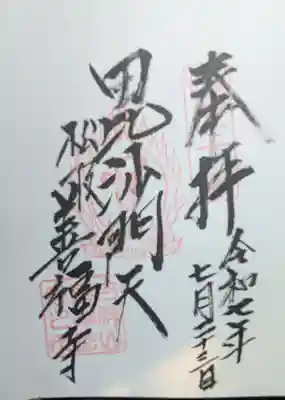 奉拝
令和七年
七月二十三日
毘沙門天
善福寺